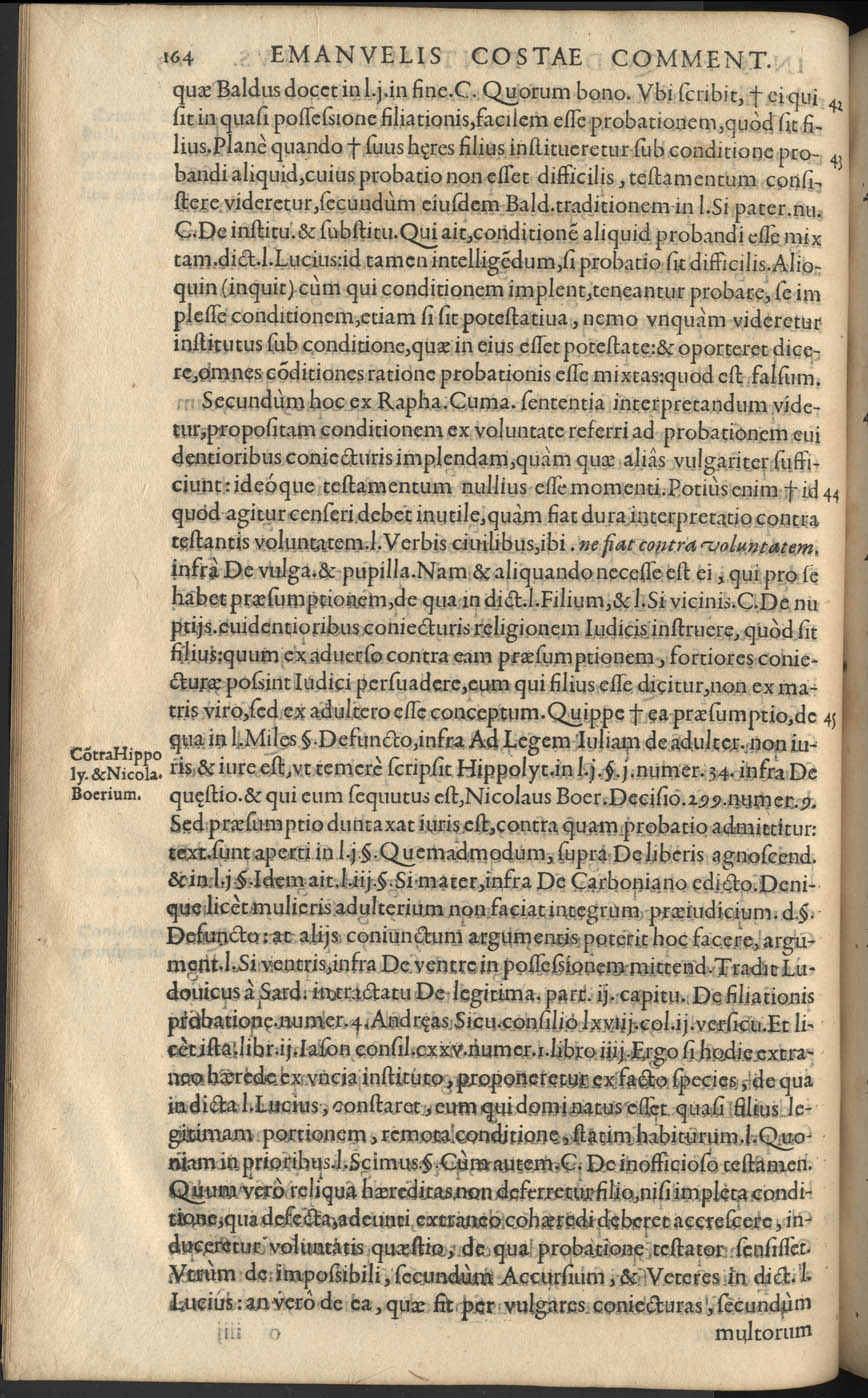 164 EMANVELIS COSTAE COMMENT.
quæ Baldus docet in l.j.in fine.C. Quorum bono. Vbi ſcribit, † ei qui 42
ſit in quaſi poſſeſsione filiationis,facilem eſſe probationem,quòd ſit fi-
lius.Planè quando † ſuus hęres filius inſtitueretur ſub conditione pro- 43
bandi aliquid,cuius probatio non eſſet difficilis, teſtamentum conſi-
ſtere videretur,ſecundùm eiuſdem Bald.traditionem in l.Si pater.nu.
C.De inſtitu.& ſubſtitu.Qui ait,conditionẽ aliquid probandi eſſe mix
tam.dict.l.Lucius:id tamen intelligẽdum,ſi probatio ſit difficilis.Alio-
quin (inquit) cùm qui conditionem implent,teneantur probare, ſe im
pleſſe conditionem,etiam ſi ſit poteſtatiua, nemo vnquàm videretur
inſtitutus ſub conditione,quæ in eius eſſet poteſtate:& oporteret dice-
re,omnes cõditiones ratione probationis eſſe mixtas:quod eſt falſum.
Secundùm hoc ex Rapha.Cuma. ſententia interpretandum vide-
tur,propoſitam conditionem ex voluntate referri ad probationem eui
dentioribus coniecturis implendam,quàm quæ aliâs vulgariter ſuffi-
ciunt: ideóque teſtamentum nullius eſſe momenti.Potiùs enim † id 44
quod agitur cenſeri debet inutile,quàm fiat dura interpretatio contra
teſtantis voluntatem.l.Verbis ciuilibus,ibi . ne fiat contra voluntatem.
infrà De vulga.& pupilla.Nam & aliquando neceſſe eſt ei, qui pro ſe
habet præſumptionem,de qua in dict.l.Filium,& l.Si vicinis.C.De nu
ptijs.euidentioribus coniecturis religionem Iudicis inſtruere, quòd ſit
filius:quum ex aduerſo contra eam præſumptionem, fortiores conie-
cturæ poſsint Iudici perſuadere,eum qui filius eſſe dicitur,non ex ma-
tris viro,ſed ex adultero eſſe conceptum.Quippe † ea præſumptio,de 45
qua in l.Miles §.Defuncto,infra Ad Legem Iuliam de adulter. non iu-
ris & iure eſt,vt temerè ſcripſit Hippolyt.in l.j.§.j.numer.34. infra De
quęſtio.& qui eum ſequutus eſt,Nicolaus Boer.Deciſio.299.numer.9.
Cõtra Hippo
ly. & Nicola.
Boerium.
Sed præſumptio duntaxat iuris eſt,contra quam probatio admittitur:
text.ſunt aperti in l.j.§.Quemadmodum, ſupra De liberis agnoſcend.
& in l.j §.Idem ait.l.iij.§.Si mater,infra De Carboniano edicto.Deni-
que licèt mulieris adulterium non faciat integrum præiudicium. d.§.
Defuncto: at alijs coniunctum argumentis poterit hoc facere, argu-
ment.l.Si ventris,infra De ventre in poſſeſsionem mittend.Tradit Lu-
douicus à Sard. in tractatu De legitima. part. ij. capitu. De filiationis
probatione.numer.4.Andręas Sicu.conſilio lxviij.col.ij.verſicu.Et li-
cèt iſta.libr.ij.Iaſon conſil.cxxv.numer.1.libro iiij.Ergo ſi hodie extra-
neo hærede ex vncia inſtituto, proponeretur ex facto ſpecies, de qua
in dicta l.Lucius, conſtaret, eum qui dominatus eſſet quaſi filius le-
gitimam portionem, remota conditione, ſtatim habiturum.l.Quo-
niam in prioribus.l.Scimus.§.Cùm autem.C. De inofficioſo teſtamen.
Quum verò reliqua hæreditas non deferretur filio,niſi impleta condi-
tione,qua defecta,adeunti extraneo cohæredi deberet accreſcere, in-
duceretur voluntatis quæſtio, de qua probatione teſtator ſenſiſſet.
Vtrùm de impoſsibili, ſecundùm Accurſium, & Veteres in dict. l.
Lucius: an verò de ea, quæ fit per vulgares coniecturas, ſecundùm
multorum